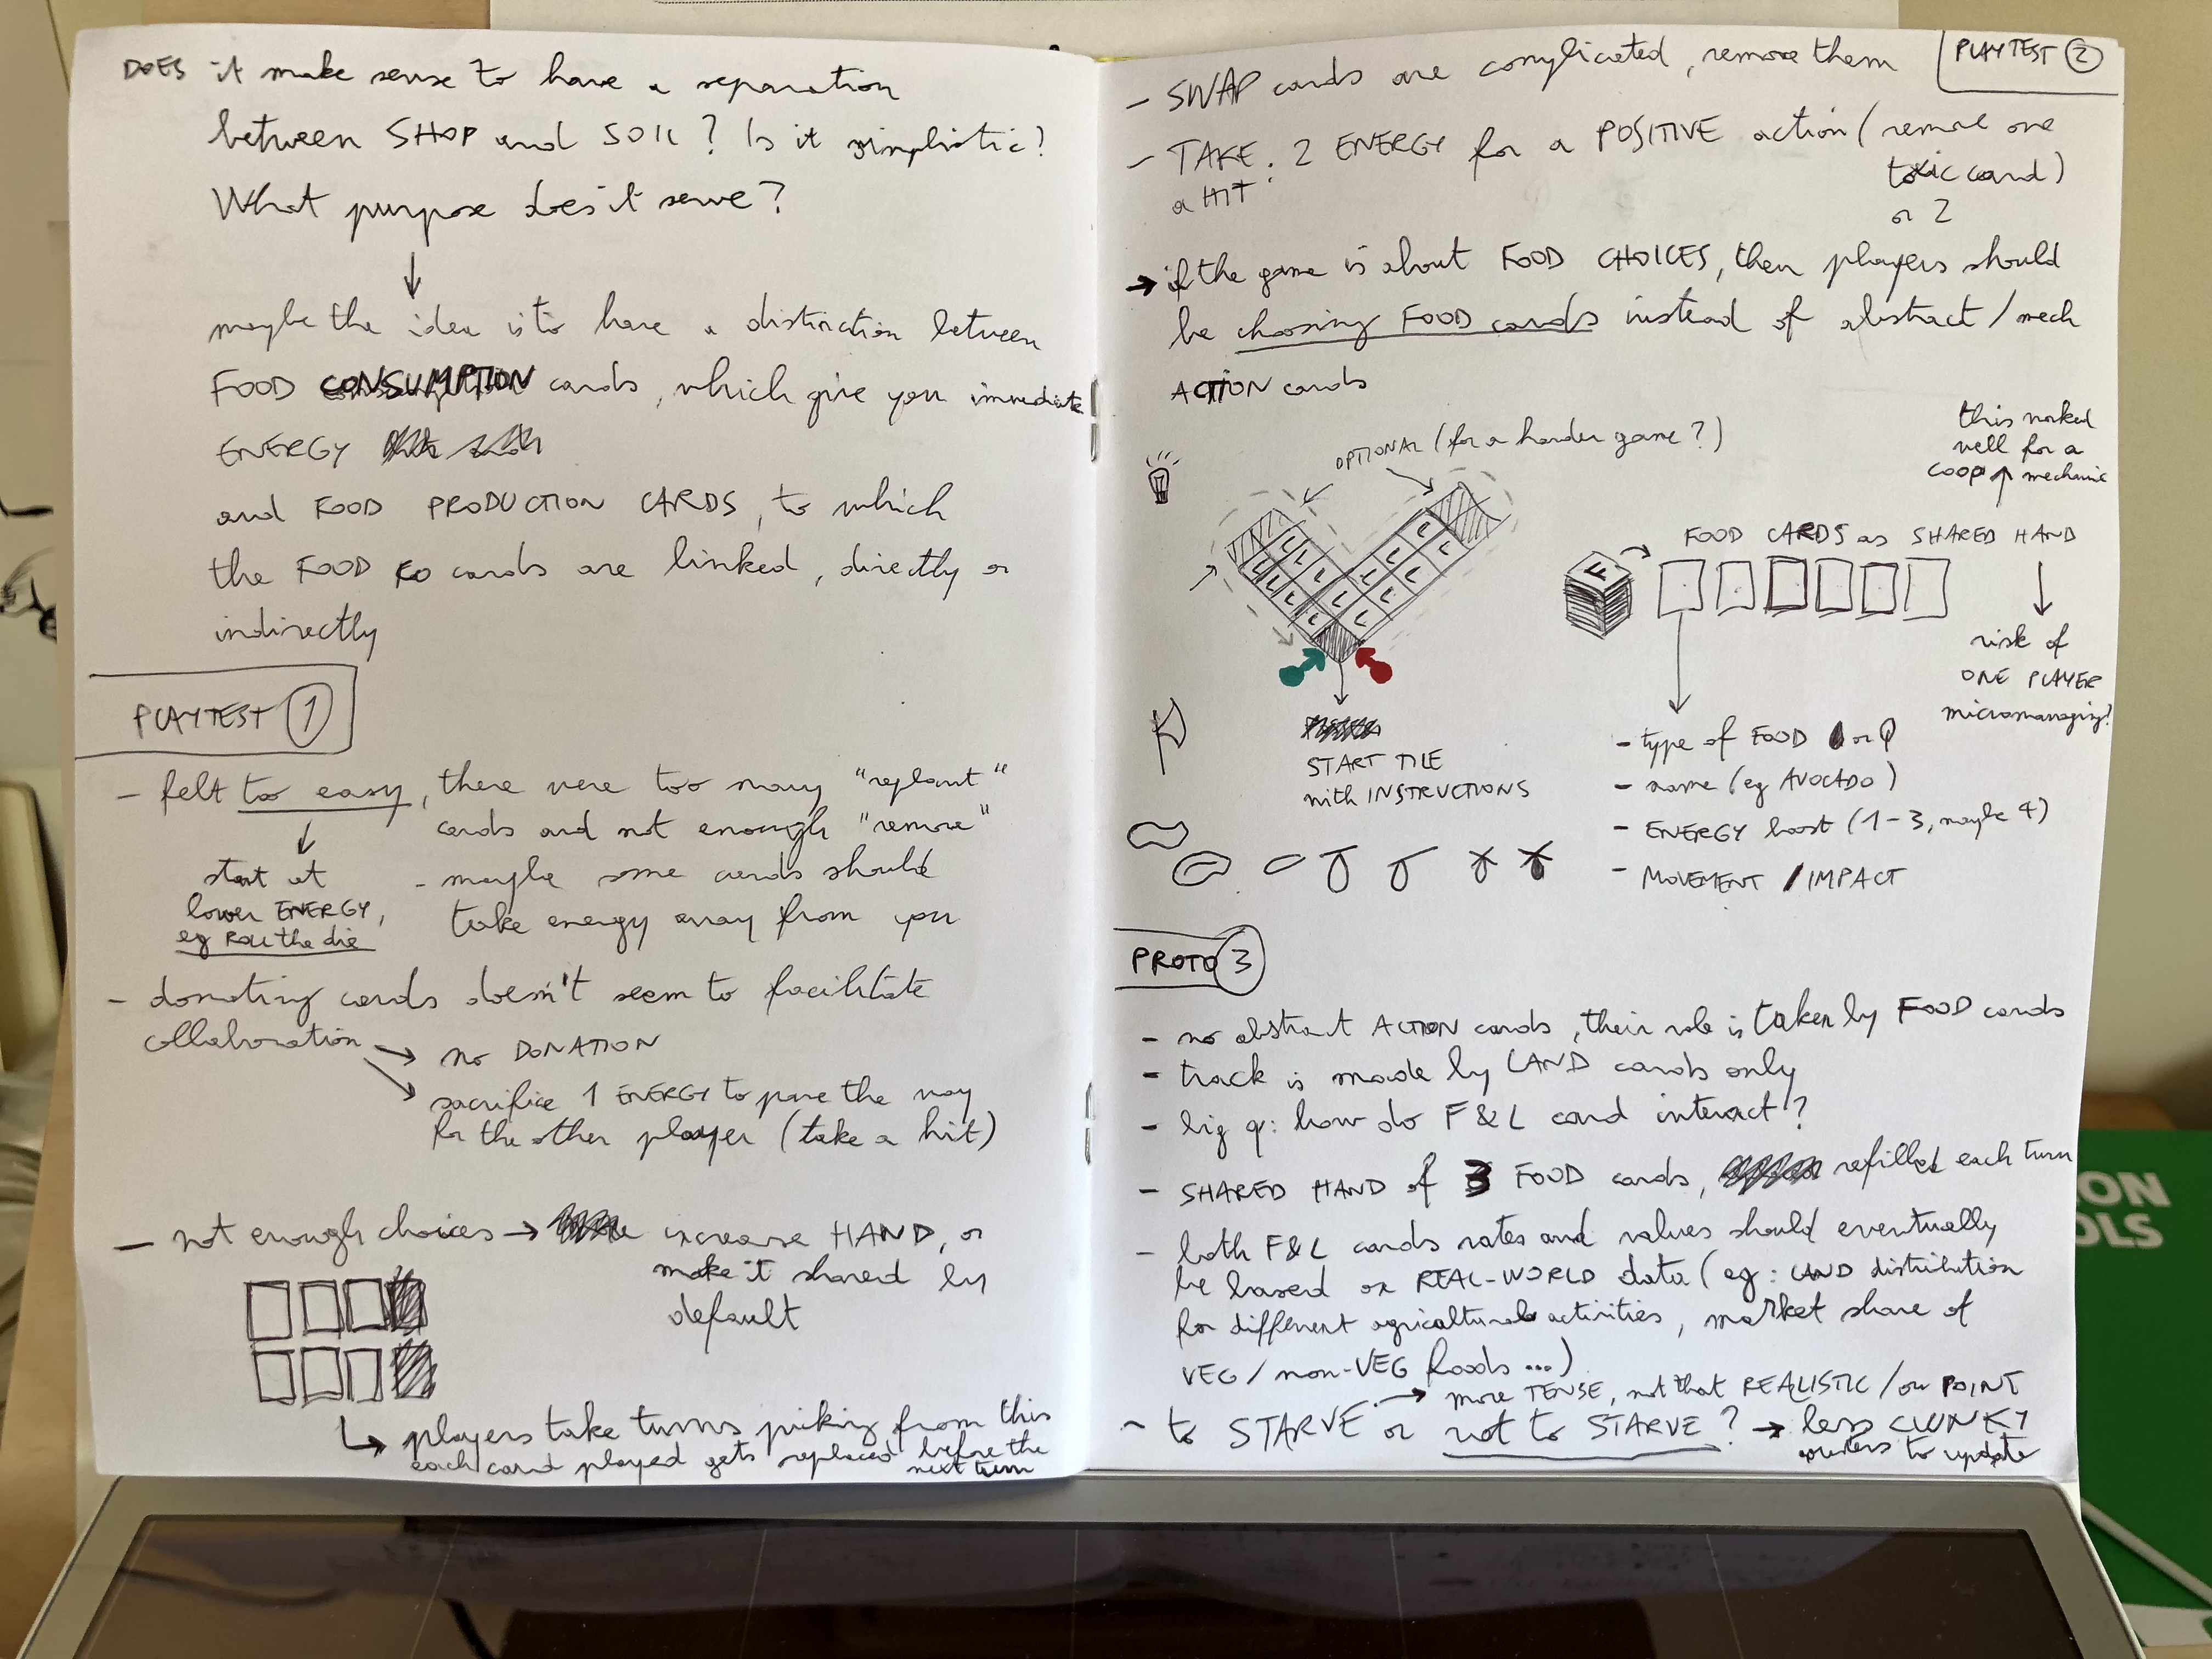 DOES it make sense to have a separation
between SHOP and SOIL? Is it simplistic?
What purpose does it serve?
maybe the idea is to have a distinction between
FOOD CONSUMPTION cards, which give you immediate
ENERGY
and FOOD PRODUCTION CARDS, to which
the FOOD CO cards are linked, directly or
indirectly
PLAYTEST 1
- felt too easy, there were too many "replant"
cards and not enough "remove"
start at
lower ENERGY,
eg ROLL the die
- maybe some cards should
take energy away from you
- donating cards doesn't seem to facilitate
collaboration
→ no DONATION
→ sacrifice 1 ENERGY to pave the way
for the other player (take a hit)
- not enough choices → increase HAND, or
make it shared by
default
↳ players take turns picking from this
each card played gets replaced before the
next turn
PLAYTEST 2
- SWAP cards are complicated, remove them
- TAKE a HIT: 2 ENERGY for a POSITIVE action (remove one
toxic card)
or 2
→ if the game is about FOOD CHOICES, then players should
be choosing FOOD cards instead of abstract/mech
ACTION cards
OPTIONAL (for a harder game?)
this worked
well for a
COOP mechanic
FOOD CARDS as SHARED HAND
F
L L L L L L L L
risk of
ONE PLAYER
micromanaging?
START TILE
with INSTRUCTIONS
- type of FOOD or
- name (eg AVOCADO)
- ENERGY boost (1-3, maybe 4)
- MOVEMENT / IMPACT
PROTO 3
- no abstract ACTION cards, their role is taken by FOOD cards
- track is made by LAND cards only
- big q: how do F&L card interact?
- SHARED HAND of 3 FOOD cards, refilled each turn
- both F&L cards rates and values should eventually
be based on REAL-WORLD data (eg: LAND distribution
for different agricultural activities, market share of
VEG/non-VEG foods ...)
→ more TENSE, not that REALISTIC/on POINT
- to STARVE or not to STARVE? → less CLUNKY
counters to update
ON
OLS